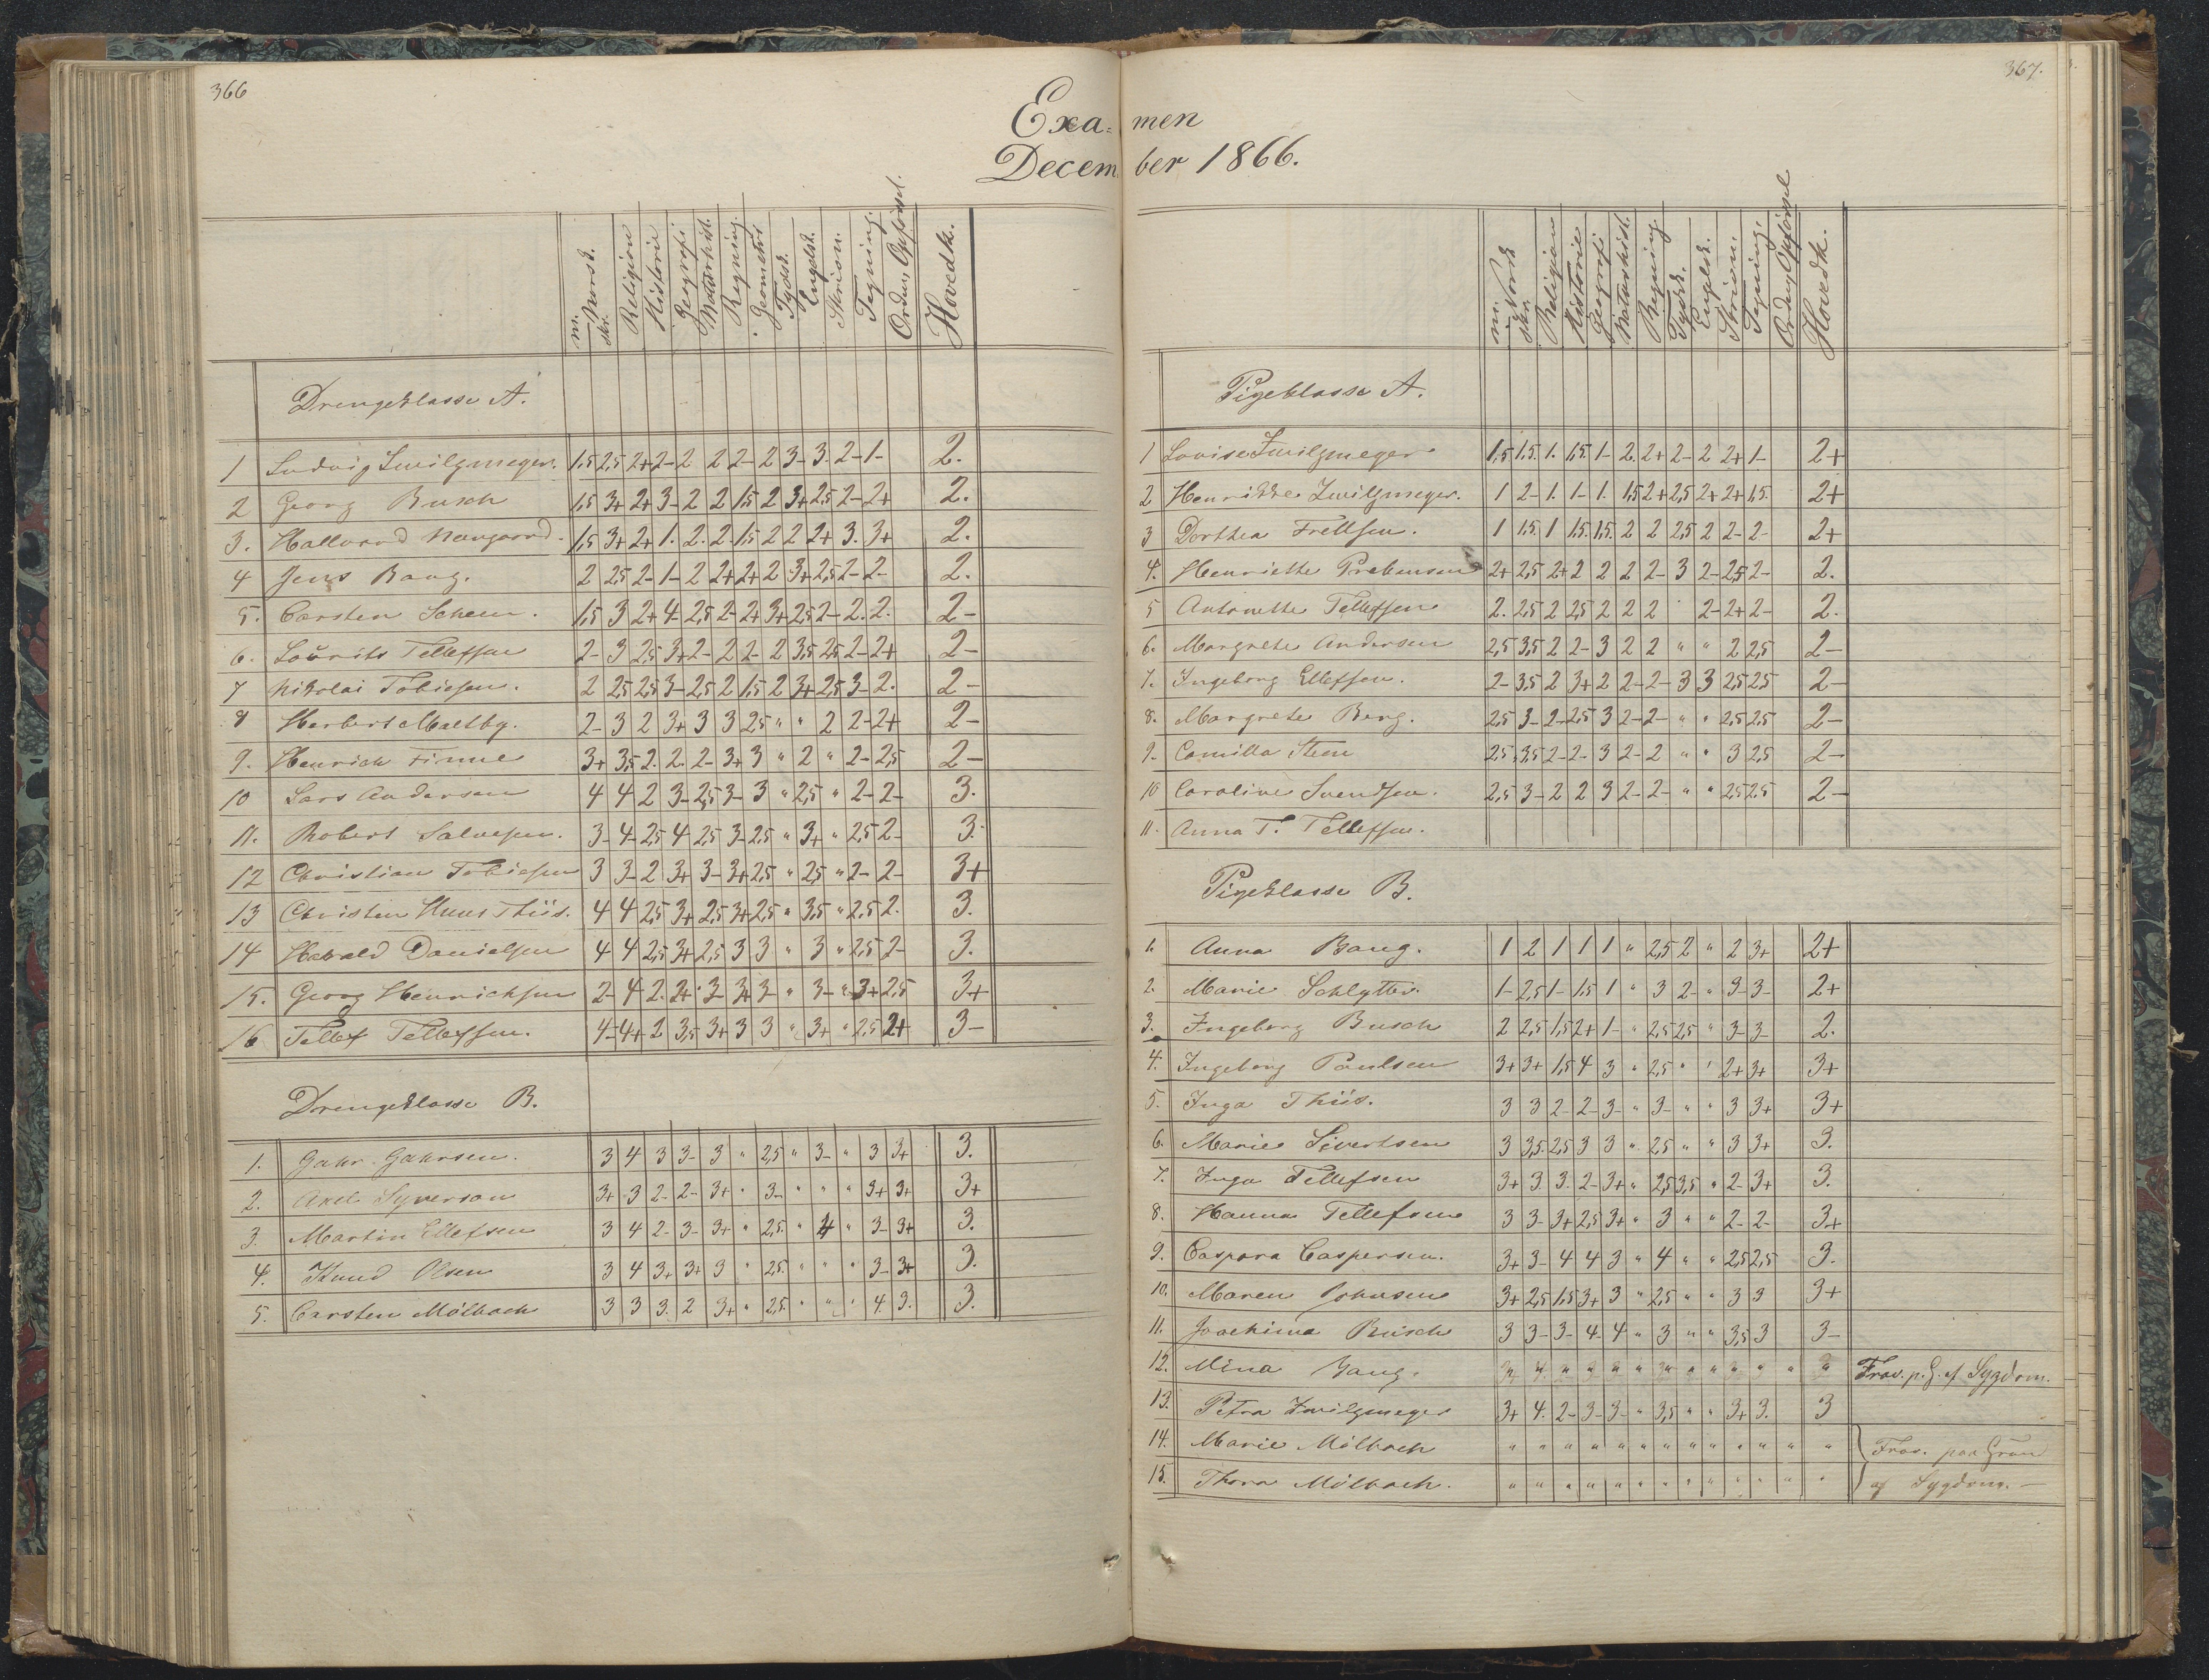 366
Exa=
Decem
m. Norsk. skr. Religion Historie Geografi Naturhist. Regning Geometri Tydsk. Engelsk. Skrivn. Tegning. Orden, Opførsel. Hovedk.
Drengeklasse A.
1 Ludvig Zwilgmeyer. 1,5 2,5 2+ 2- 2 2 2- 2 3- 3. 2- 1- 2.
2 Georg Busch 1,5 3+ 2+ 3- 2 2 1,5 2 3+ 2,5 2- 2+ 2.
3. Hallvard 1,5 3+ 2+ 1. 2. 2. 1,5 2 2 2+ 3. 3+ 2.
4 Jens Bang. 2 2,5 2- 1- 2 2+ 2+ 2 3+ 2,5 2- 2- 2.
5. Carsten 1,5 3 2+ 4- 2,5 2- 2+ 3+ 2,5 2- 2. 2. 2-
6. Lauritz Tellefsen 2- 3 2,5 3+ 2- 2 2- 2 3,5 2,5 2- 2+ 2-
7 Nikolai Tobiesen. 2 2,5 2,5 3- 2,5 2 1,5 2 3+ 2,5 3- 2. 2-
8 Herbert Maltby. 2- 3 2 3+ 3 3 2,5 " " 2 2- 2+ 2-
9. Henrich Finne 3+ 3,5 2. 2. 2- 3+ 3 " 2 " 2- 2,5 2-
10 Lars Andersen 4 4 2 3- 2,5 3- 3 " 2,5 " 2- 2- 3.
11. Robert Salvesen. 3- 4- 2,5 4 2,5 3- 2,5 " 3+ " 2,5 2- 3.
12 Christian Tobiesen 3 3- 2 3+ 3- 3+ 2,5 " 2,5 " 2- 2- 3+
13 Christen Thiis. 4 4 2,5 3+ 2,5 3+ 2,5 " 3,5 " 2,5 2. 3.
14 Harald Danielsen 4 4 2,5 3+ 2,5 3 3 " 3 " 2,5 2- 3.
15. Georg Henrichsen 2- 4 2. 2+ 3- 3+ 3- " 3- " 3+ 2,5 3+
16 Tellef Tellefsen. 4- 4+ 2 3,5 3+ 3 3 " 3+ " 2,5 2+ 3-
Drengeklasse B.
1. Gahr. Gahrsen. 3 4 3 3- 3 " 2,5 " 3- " 3 3+ 3.
2. Axel Syverson 3+ 3 2- 2- 3+ " 3- " " " 3+ 3+ 3+
3. Martin Ellefsen 3 4 2- 3- 3+ " 2,5. " 4 " 3- 3+ 3.
4. Knud Olsen 3 4 3+ 3+ 3 " 2,5. " " " 3- 3+ 3.
5. Carsten Mölbach 3 3 3. 2 3+ " 2,5. " " " 4. 3. 3.
367.
men
ber 1866.
m. Norsk skr. Religion Historie Geografi Naturhist. Regning Tydsk. Engelsk. Skrivn. Tegning. Orden, Opførsel Hovedk.
Pigeklasse A.
1 Lovise Zwilgmeyer 1,5 1,5. 1. 1,5. 1- 2. 2+ 2- 2 2+ 1- 2+
2 Henrikke Zwilgmeyer. 1 2- 1. 1- 1. 1,5 2+ 2,5 2+ 2+ 1,5. 2+
3 Dorthea 1 1,5. 1 1,5. 1,5. 2 2 2,5 2 2- 2- 2+
4. Henriette Prebensen 2+ 2,5 2+ 2 2 2 2- 3 2- 2,5 2- 2.
5 Antonette Tellefsen 2. 2,5 2 2,5 2 2 2 " 2- 2+ 2- 2.
6. Margrete Andersen 2,5 3,5 2 2- 3 2 2 " " 2 2,5 2-
7. Ingeborg Ellefsen. 2- 3,5 2 3+ 2 2- 2- 3 3 2,5 2,5 2-
8. Margrete Berg. 2,5 3- 2- 2,5 3 2- 2- " " 2,5 2,5 2-
9. Camilla 2,5 3,5 2- 2- 3 2- 2 " " 3 2,5 2-
10 Caroline Svendsen. 2,5 3- 2 2 3 2- 2- " " 2,5 2,5 2-
11. Anna T. Tellefsen.
Pigeklasse B.
1. Anna Bang. 1 2 1 1 1 " 2,5 2 " 2 3+ 2+
2. Marie Schlytter. 1- 2,5 1- 1,5 1 " 3 2- " 3- 3- 2+
3. Ingeborg Busch 2 2,5 1,5 2+ 1- " 2,5 2,5 " 3- 3- 2.
4. Ingeborg Paulsen 3+ 3+ 1,5 4 3 " 2,5 " " 2+ 3+ 3+
5. Inga Thiis. 3 3 2- 2- 3- " 3- " " 3 3+ 3+
6. Marie Sivertsen 3 3,5. 2,5 3 3 " 2,5 " " 3 3+ 3.
7. Inga Tellefsen 3+ 3 3. 2- 3+ " 2,5 3,5 " 2- 3+ 3.
8. Hanna Tellefsen 3 3- 3+ 2,5 3+ " 3 " " 2- 2- 3+
9. Caspara Caspersen. 3+ 3- 4 4 3 " 4 " " 2,5 2,5 3.
10. Maren Johnsen 3+ 2,5 1,5 3+ 3 " 2,5 " " 3 3 3+
11. Joachima Busch 3 3- 3- 4- 4 " 3 " " 3,5 3 3-
12. Mina Bang. " " " " " " " " " " " " Frav. p. G. af Sygdom.
13. Petra Zwilgmeyer 3+ 4. 2- 3- 3- " 3,5 " " 3+ 3. 3
14. Marie Mölbach " " " " " " " " " " " " " Frav. paa Grun
15. Thora Mölbach. " " " " " " " " " " " " " af Sygdom. -